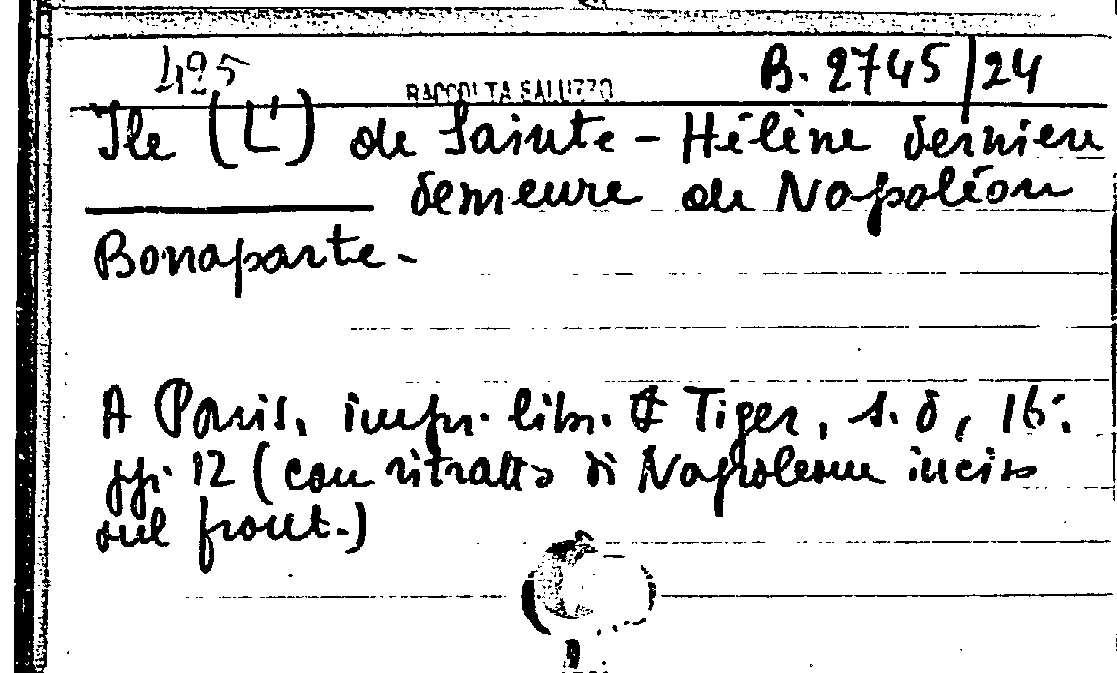 425
RACCOLTA SALUZZO
B. 2745/24
Ile (L') de Sainte-Hélène derniere
demeure de Napoléon
Bonaparte.
A Paris, impr. libr. Tiger, s.d, 16:
pp. 12 (con ritratto di Napoleone inciso
sul front.)